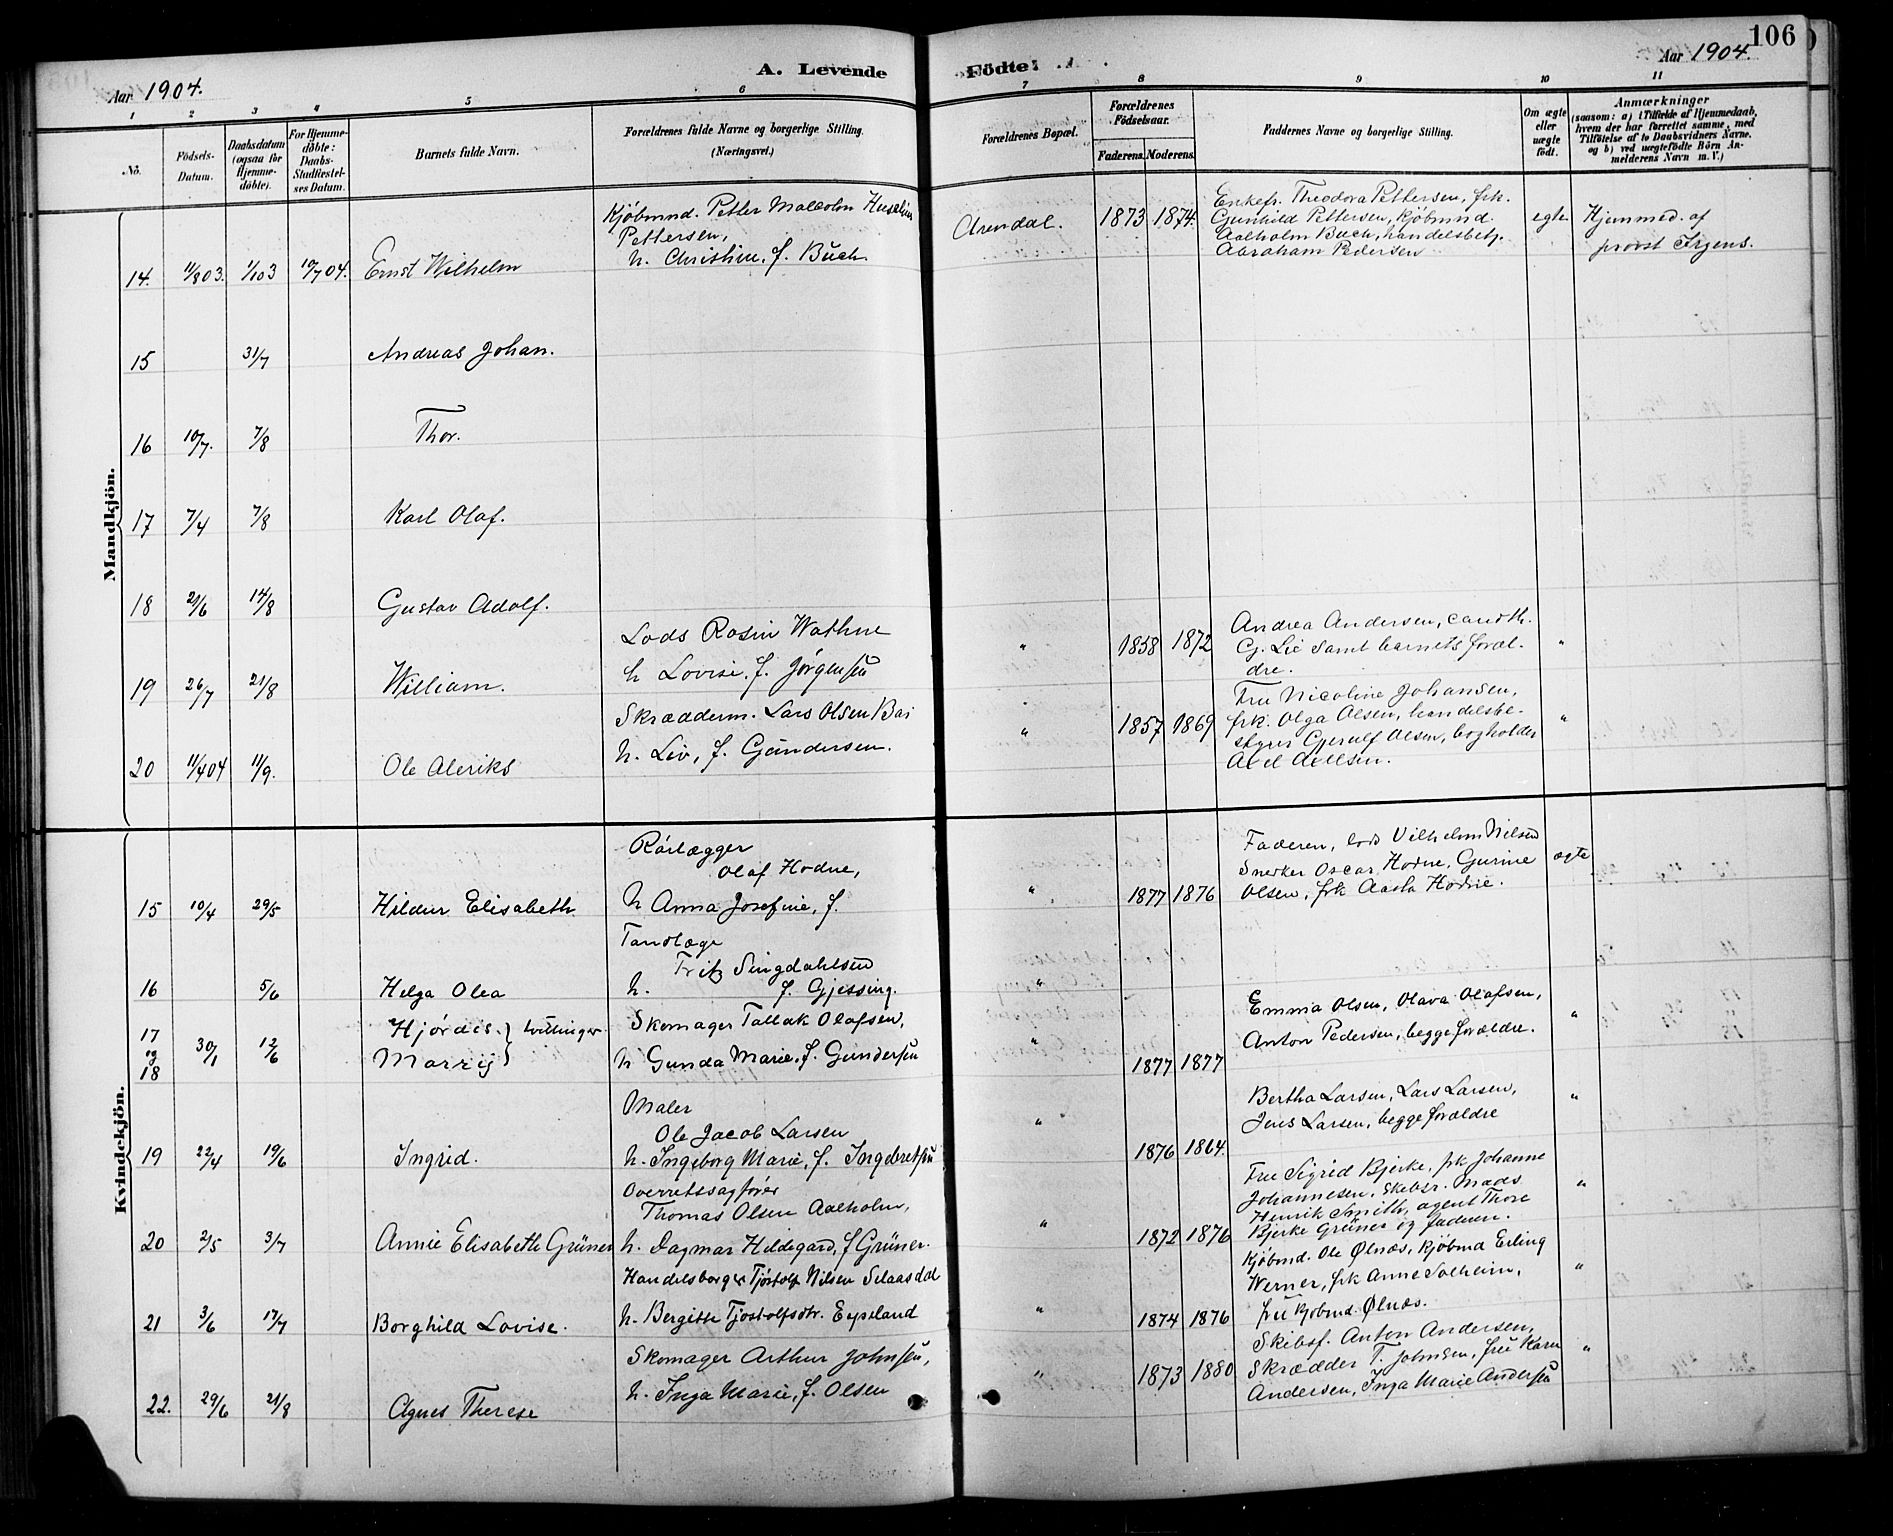 106
Aar 1904.
A. Levende
Födte.
Aar 1904.
1 2 3 4 5 6 7 8 9 10 11
No.
Födsels-Datum.
Daabsdatum (ogsaa for Hjemme-döbte).
For Hjemme-döbte: Daabs-Stadfæstel-ses Datum.
Barnets fulde Navn.
Forældrenes fulde Navne og borgerlige Stilling. (Næringsvei.)
Forældrenes Bopæl.
Forældrenes Födselsaar.
Faderens. Moderens.
Faddernes Navne og borgerlige Stilling.
Om ægte eller uægte födt.
Anmærkninger
(saasom: a) i Tilfælde af Hjemmedaab,
hvem der har forrettet samme, med
Tilföielse af to Daabsvidners Navne.
og b) ved uægtefödte Börn An-
melderens Navn m. V.)
Mandkjön.
14. 11/8 03. 1/10 3 10/7 04. Ernst Wilhelm
Kjöbmnd. Petter Malcolm
Pettersen,
h. Christine, f. Buch.
Arendal. 1873 1874.
Enkefr. Theodora Pettersen, frk.
Gunhild Pettersen, Kjöbmnd.
Aalholm Buch, handelsbetj.
Abraham Pedersen
egte
Hjemmed. af
provst Irgens.
15 31/7 Andreas Johan.
16 10/7. 7/8 Thor.
17 7/4 7/8 Karl Olaf.
18 21/6 14/8 Gustav Adolf.
19 26/7 21/8 William.
Lods Rosin Wathne
h Lovise, f. Jørgensen
" 1858 1872
Andrea Andersen, cand th.
Cj. Lie samt barnets foræl-
dre.
"
20 11/4 04 11/9. Ole Aleriks
Skrædderm. Lars Olsen Bai
h. Liv, f. Gundersen.
" 1857 1869
Fru Nicoline Johansen,
frk. Olga Olsen, handelsbe-
styrer Gjerulf Olsen, bogholder
Axel Axelsen.
"
Kvindekjön.
15 10/4 29/5 Hildur Elisabeth
Rørlægger
Olaf Hodne,
h Anna Josefine, f.
" 1877 1876
Faderen, lods Vilhelm Nilsen
Snerker Oscar Hodne, Gurine
Olsen, frk Aasta Hodne.
ægte
16 5/6 Helga Olea
Tandlæge
Fritz Singdahlsen
h. f. Gjessing.
"
17 og 18 30/1 12/6 Hjørdis. Marry } tvillinger
Skomager Tallak Olafsen,
h Gunda Marie, f. Gundersen
" 1877 1877
Emma Olsen, Olava Olafsen,
Anton Pedersen, begge forældre.
"
19 22/4 19/6 Ingrid.
Maler
Ole Jacob Larsen
h. Ingeborg Marie, f.
" 1876 1864.
Bertha Larsen, Lars Larsen,
Jens Larsen, begge forældre
"
20 2/5 3/7 Annie Elisabeth Grüner
Overretssagfører
Thomas Olsen Aalholm,
h. Dagmar Hildegard, f Grüner.
" 1872 1876
Fru Sigrid Bjerke, frk Johanne
Johannesen, Skibsr. Mads
Henrik Smith, agent Thore
Bjerke Grüner og faderen.
"
21 3/6 17/7 Borghild Lovise.
Handelsborger Tjøstolf Nilsen Selaasdal
h. Bergitte Tjøstolfsdtr. Eypeland
" 1874 1876
Kjøbmd. Ole Ølnæs, Kjøbmd Erling
Werner, frk Anne Solheim,
fru Kjøbmd. Ølnæs.
"
22. 29/6 21/8 Agnes Therese
Skomager Arthur Johnsen,
h. Inga Marie, f. Olsen
" 1873 1880
Skibsf. Anton Andersen,
Skrædder T. Johnsen, fru Karen
Andersen, Inga Marie Andersen
"